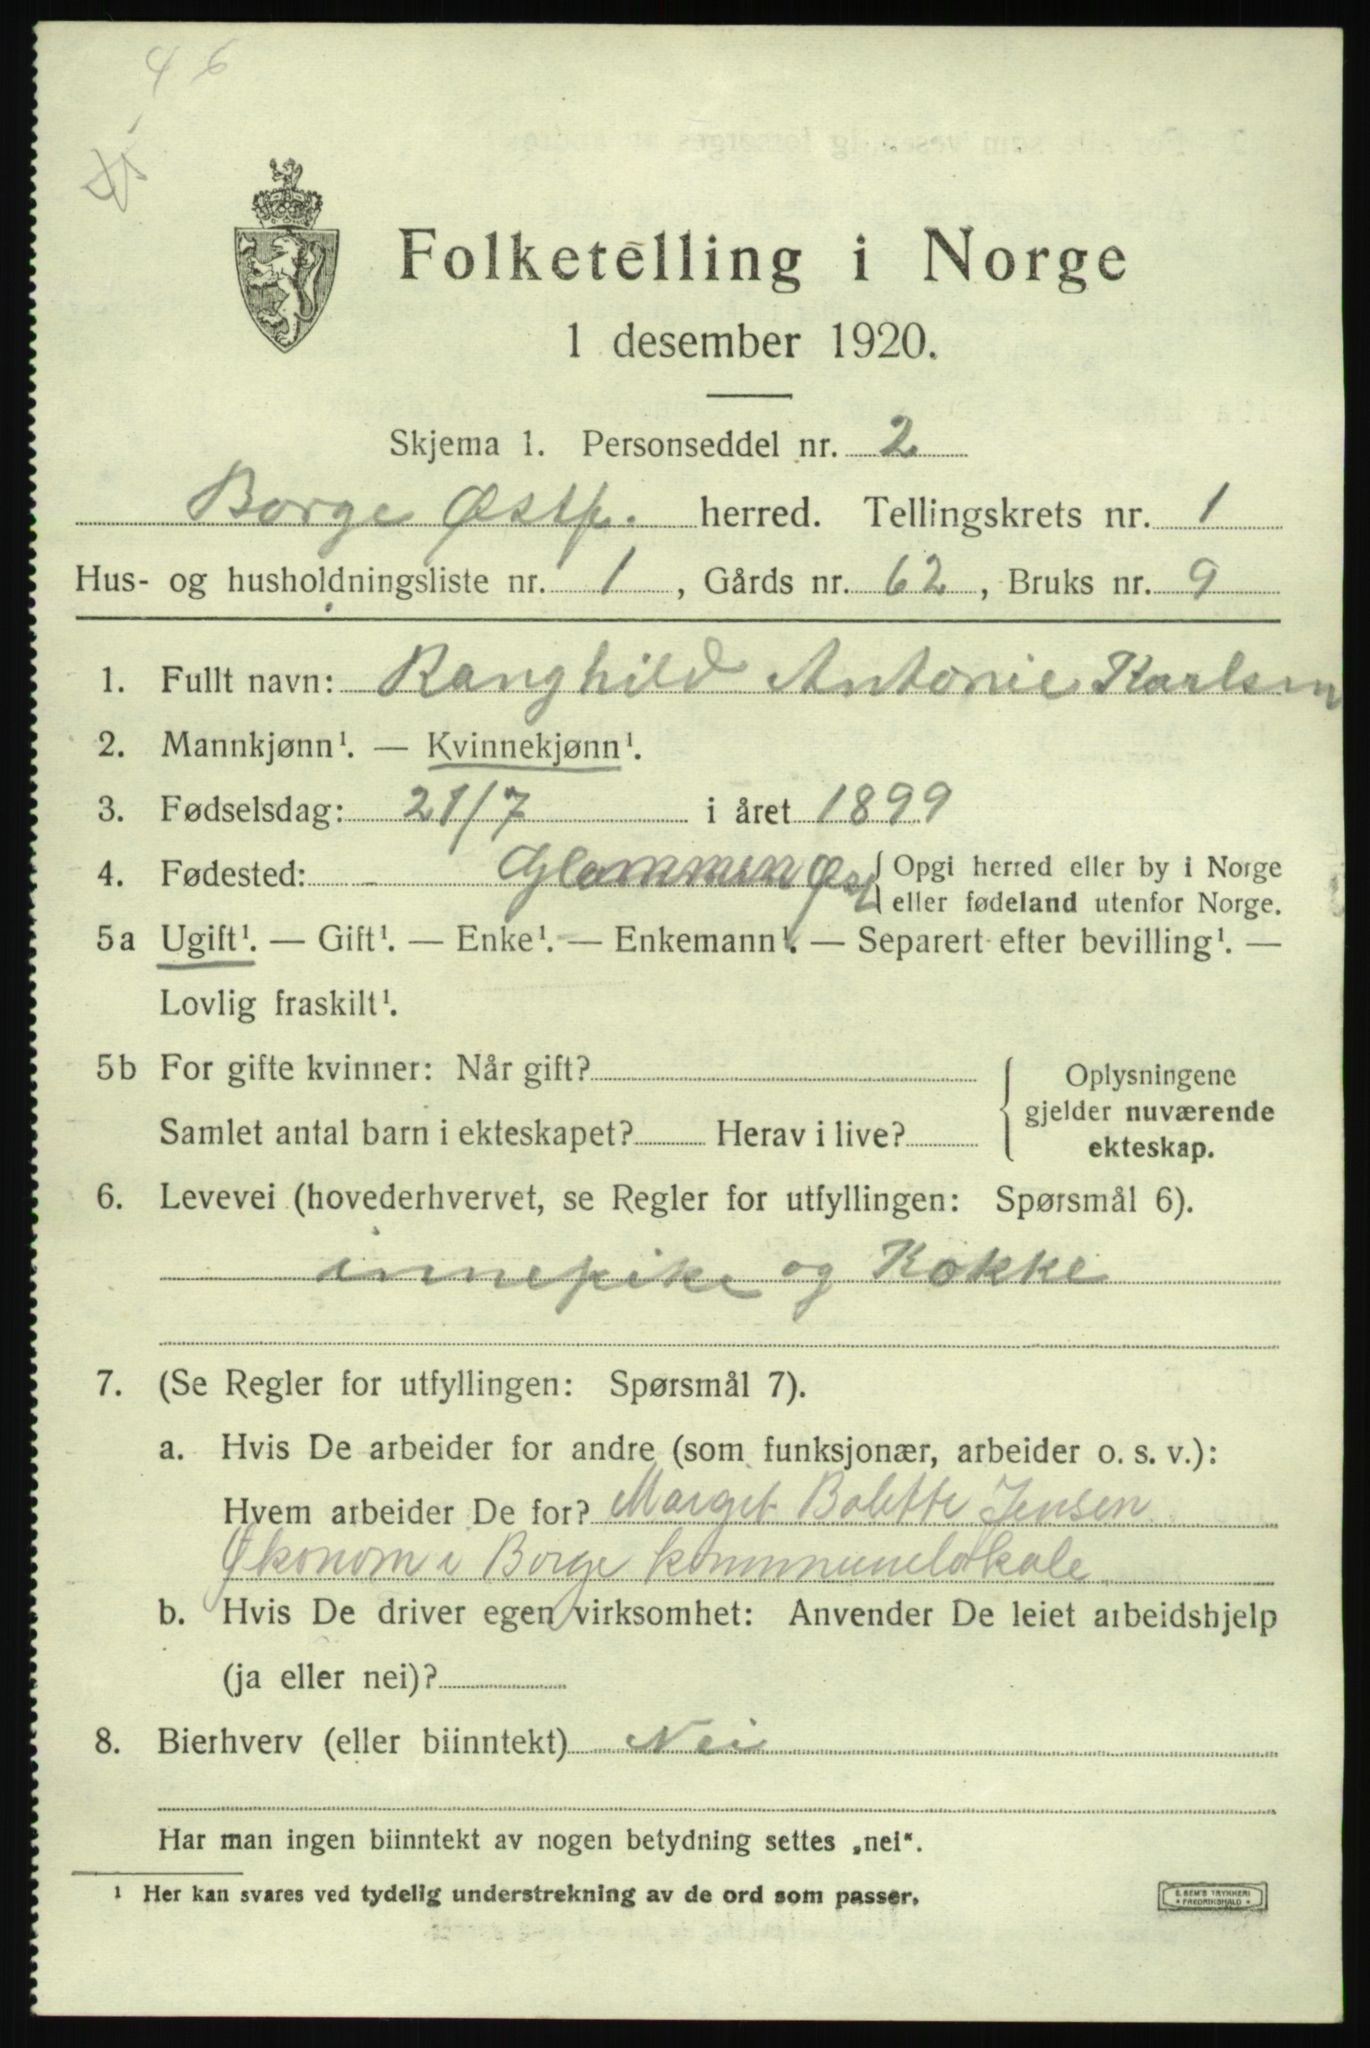 46
Folketelling i Norge
1 desember 1920.
Skjema 1. Personseddel nr. 2
Borge Østf. herred. Tellingskrets nr. 1
Hus- og husholdningsliste nr. 1, Gårds nr. 62, Bruks nr. 9
1. Fullt navn: Ranghild Antonie Karlsen
2. Mannkjønn¹. — Kvinnekjønn¹.
3. Fødselsdag: 21/7 i året 1899
4. Fødested: Glommen Østf. { Opgi herred eller by i Norge
eller fødeland utenfor Norge.
5a Ugift¹. — Gift¹. — Enke¹. — Enkemann¹. — Separert efter bevilling¹. —
Lovlig fraskilt¹.
5b For gifte kvinner: Når gift?
Samlet antal barn i ekteskapet? Herav i live?
Oplysningene
gjelder nuværende
ekteskap.
6. Levevei (hovederhvervet, se Regler for utfyllingen: Spørsmål 6).
innepike og Kokke
7. (Se Regler for utfyllingen: Spørsmål 7).
a. Hvis De arbeider for andre (som funksjonær, arbeider o. s. v.):
Hvem arbeider De for? Marget Bolette Jensen
Økonom i Borge kommunelokale
b. Hvis De driver egen virksomhet: Anvender De leiet arbeidshjelp
(ja eller nei)?
8. Bierhverv (eller biinntekt) Nei
Har man ingen biinntekt av nogen betydning settes „nei“.
¹ Her kan svares ved tydelig understrekning av de ord som passer.
E. SEM'S TRYKKERI
• FREDRIKSHALD •